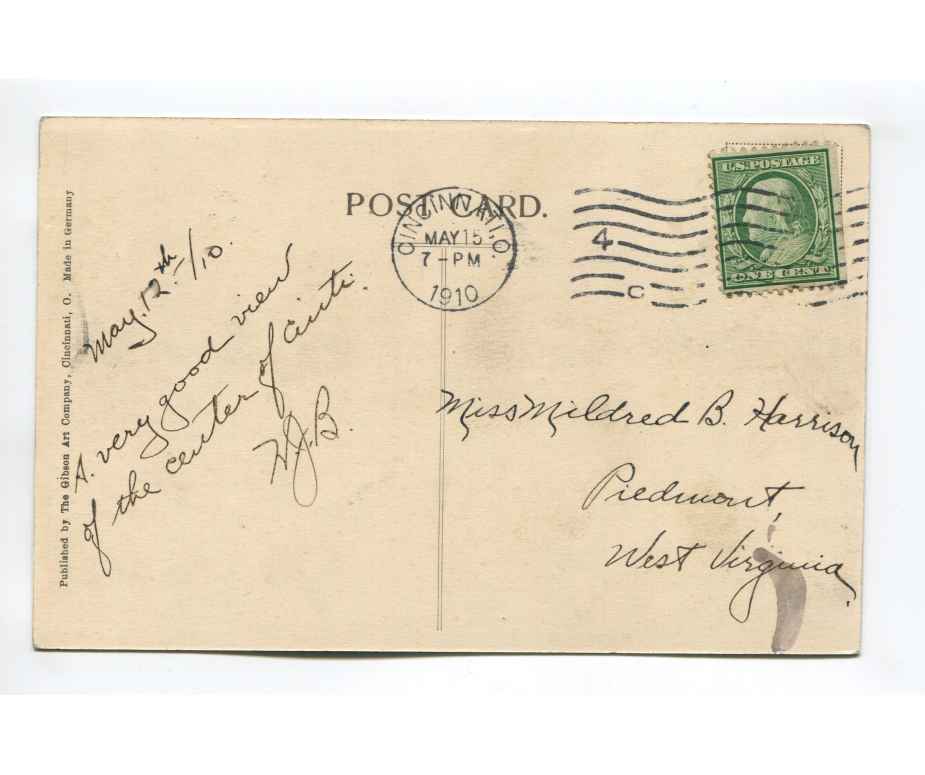 POST CARD.
CINCINNATI, O.
MAY 15
7-PM
1910
4
C
U.S. POSTAGE
ONE CENT
Published by The Gibson Art Company, Cincinnati, O. Made in Germany
May, 12th-/10.
A very good view
of the center of Cinti.
W.J.B.
Miss Mildred B. Harrison
Piedmont,
West Virginia.